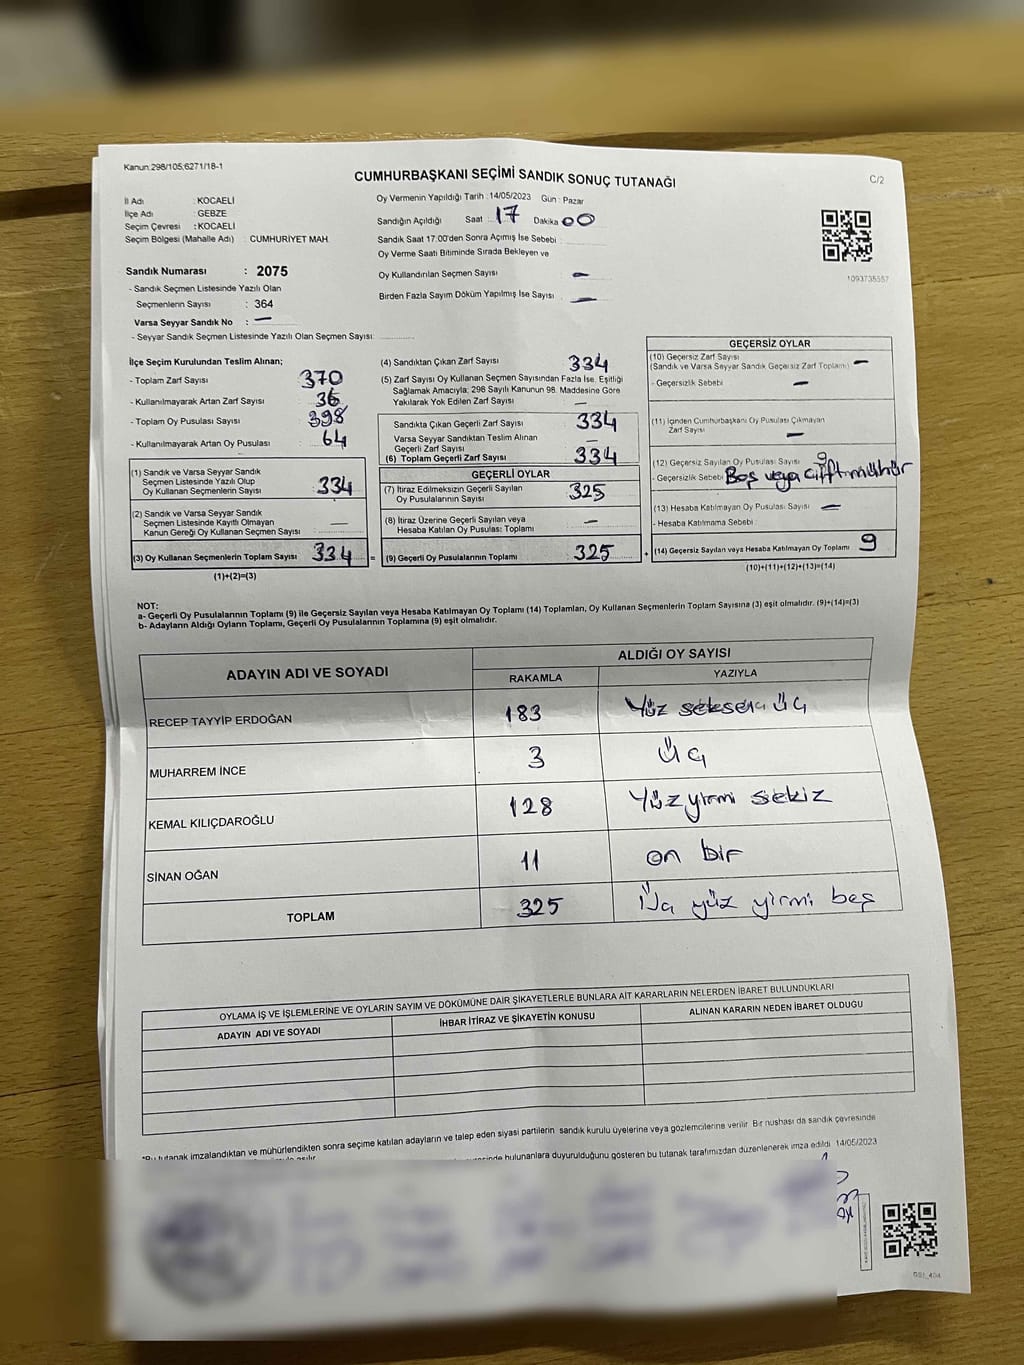 Kanun:298/105,6271/18-1
CUMHURBAŞKANI SEÇİMİ SANDIK SONUÇ TUTANAĞI
C/2
İl Adı : KOCAELİ
İlçe Adı : GEBZE
Seçim Çevresi : KOCAELİ
Seçim Bölgesi (Mahalle Adı) : CUMHURİYET MAH.
Sandık Numarası : 2075
- Sandık Seçmen Listesinde Yazılı Olan
Seçmenlerin Sayısı : 364
Varsa Seyyar Sandık No : —
- Seyyar Sandık Seçmen Listesinde Yazılı Olan Seçmen Sayısı:
Oy Vermenin Yapıldığı Tarih : 14/05/2023 Gün : Pazar
Sandığın Açıldığı Saat : 17 Dakika 00
Sandık Saat 17:00'den Sonra Açımış İse Sebebi
Oy Verme Saati Bitiminde Sırada Bekleyen ve
Oy Kullandırılan Seçmen Sayısı —
Birden Fazla Sayım Döküm Yapılmış İse Sayısı —
1093735557
İlçe Seçim Kurulundan Teslim Alınan;
- Toplam Zarf Sayısı 370
- Kullanılmayarak Artan Zarf Sayısı 36
- Toplam Oy Pusulası Sayısı 398
- Kullanılmayarak Artan Oy Pusulası 64
(1) Sandık ve Varsa Seyyar Sandık
Seçmen Listesinde Yazılı Olup
Oy Kullanan Seçmenlerin Sayısı 334
(2) Sandık ve Varsa Seyyar Sandık
Seçmen Listesinde Kayıtlı Olmayan
Kanun Gereği Oy Kullanan Seçmen Sayısı —
(3) Oy Kullanan Seçmenlerin Toplam Sayısı 334 =
(1)+(2)=(3)
(4) Sandıktan Çıkan Zarf Sayısı 334
(5) Zarf Sayısı Oy Kullanan Seçmen Sayısından Fazla İse, Eşitliği
Sağlamak Amacıyla; 298 Sayılı Kanunun 98. Maddesine Göre
Yakılarak Yok Edilen Zarf Sayısı —
Sandıkta Çıkan Geçerli Zarf Sayısı 334
Varsa Seyyar Sandıktan Teslim Alınan
Geçerli Zarf Sayısı —
(6) Toplam Geçerli Zarf Sayısı 334
GEÇERLİ OYLAR
(7) İtiraz Edilmeksizin Geçerli Sayılan
Oy Pusulalarının Sayısı 325
(8) İtiraz Üzerine Geçerli Sayılan veya
Hesaba Katılan Oy Pusulası Toplamı —
(9) Geçerli Oy Pusulalarının Toplamı 325 +
GEÇERSİZ OYLAR
(10) Geçersiz Zarf Sayısı
(Sandık ve Varsa Seyyar Sandık Geçersiz Zarf Toplamı) —
- Geçersizlik Sebebi —
(11) İçinden Cumhurbaşkanı Oy Pusulası Çıkmayan
Zarf Sayısı —
(12) Geçersiz Sayılan Oy Pusulası Sayısı 9
- Geçersizlik Sebebi Boş veya çift mühür
(13) Hesaba Katılmayan Oy Pusulası Sayısı —
- Hesaba Katılmama Sebebi
(14) Geçersiz Sayılan veya Hesaba Katılmayan Oy Toplamı 9
(10)+(11)+(12)+(13)=(14)
NOT:
a- Geçerli Oy Pusulalarının Toplamı (9) ile Geçersiz Sayılan veya Hesaba Katılmayan Oy Toplamı (14) Toplamları, Oy Kullanan Seçmenlerin Toplam Sayısına (3) eşit olmalıdır. (9)+(14)=(3)
b- Adayların Aldığı Oyların Toplamı, Geçerli Oy Pusulalarının Toplamına (9) eşit olmalıdır.
ADAYIN ADI VE SOYADI
ALDIĞI OY SAYISI
RAKAMLA YAZIYLA
RECEP TAYYİP ERDOĞAN 183 Yüz seksen üç
MUHARREM İNCE 3 Üç
KEMAL KILIÇDAROĞLU 128 Yüz yirmi sekiz
SİNAN OĞAN 11 on bir
TOPLAM 325 Üç yüz yirmi beş
OYLAMA İŞ VE İŞLEMLERİNE VE OYLARIN SAYIM VE DÖKÜMÜNE DAİR ŞİKAYETLERLE BUNLARA AİT KARARLARIN NELERDEN İBARET BULUNDUKLARI
ADAYIN ADI VE SOYADI İHBAR İTİRAZ VE ŞİKAYETİN KONUSU ALINAN KARARIN NEDEN İBARET OLDUĞU
*Bu tutanak imzalandıktan ve mühürlendikten sonra seçime katılan adayların ve talep eden siyasi partilerin sandık kurulu üyelerine veya gözlemcilerine verilir. Bir nushası da sandık çevresinde
bulunanlara duyurulduğunu gösteren bu tutanak tarafımızdan düzenlenerek imza edildi. 14/05/2023